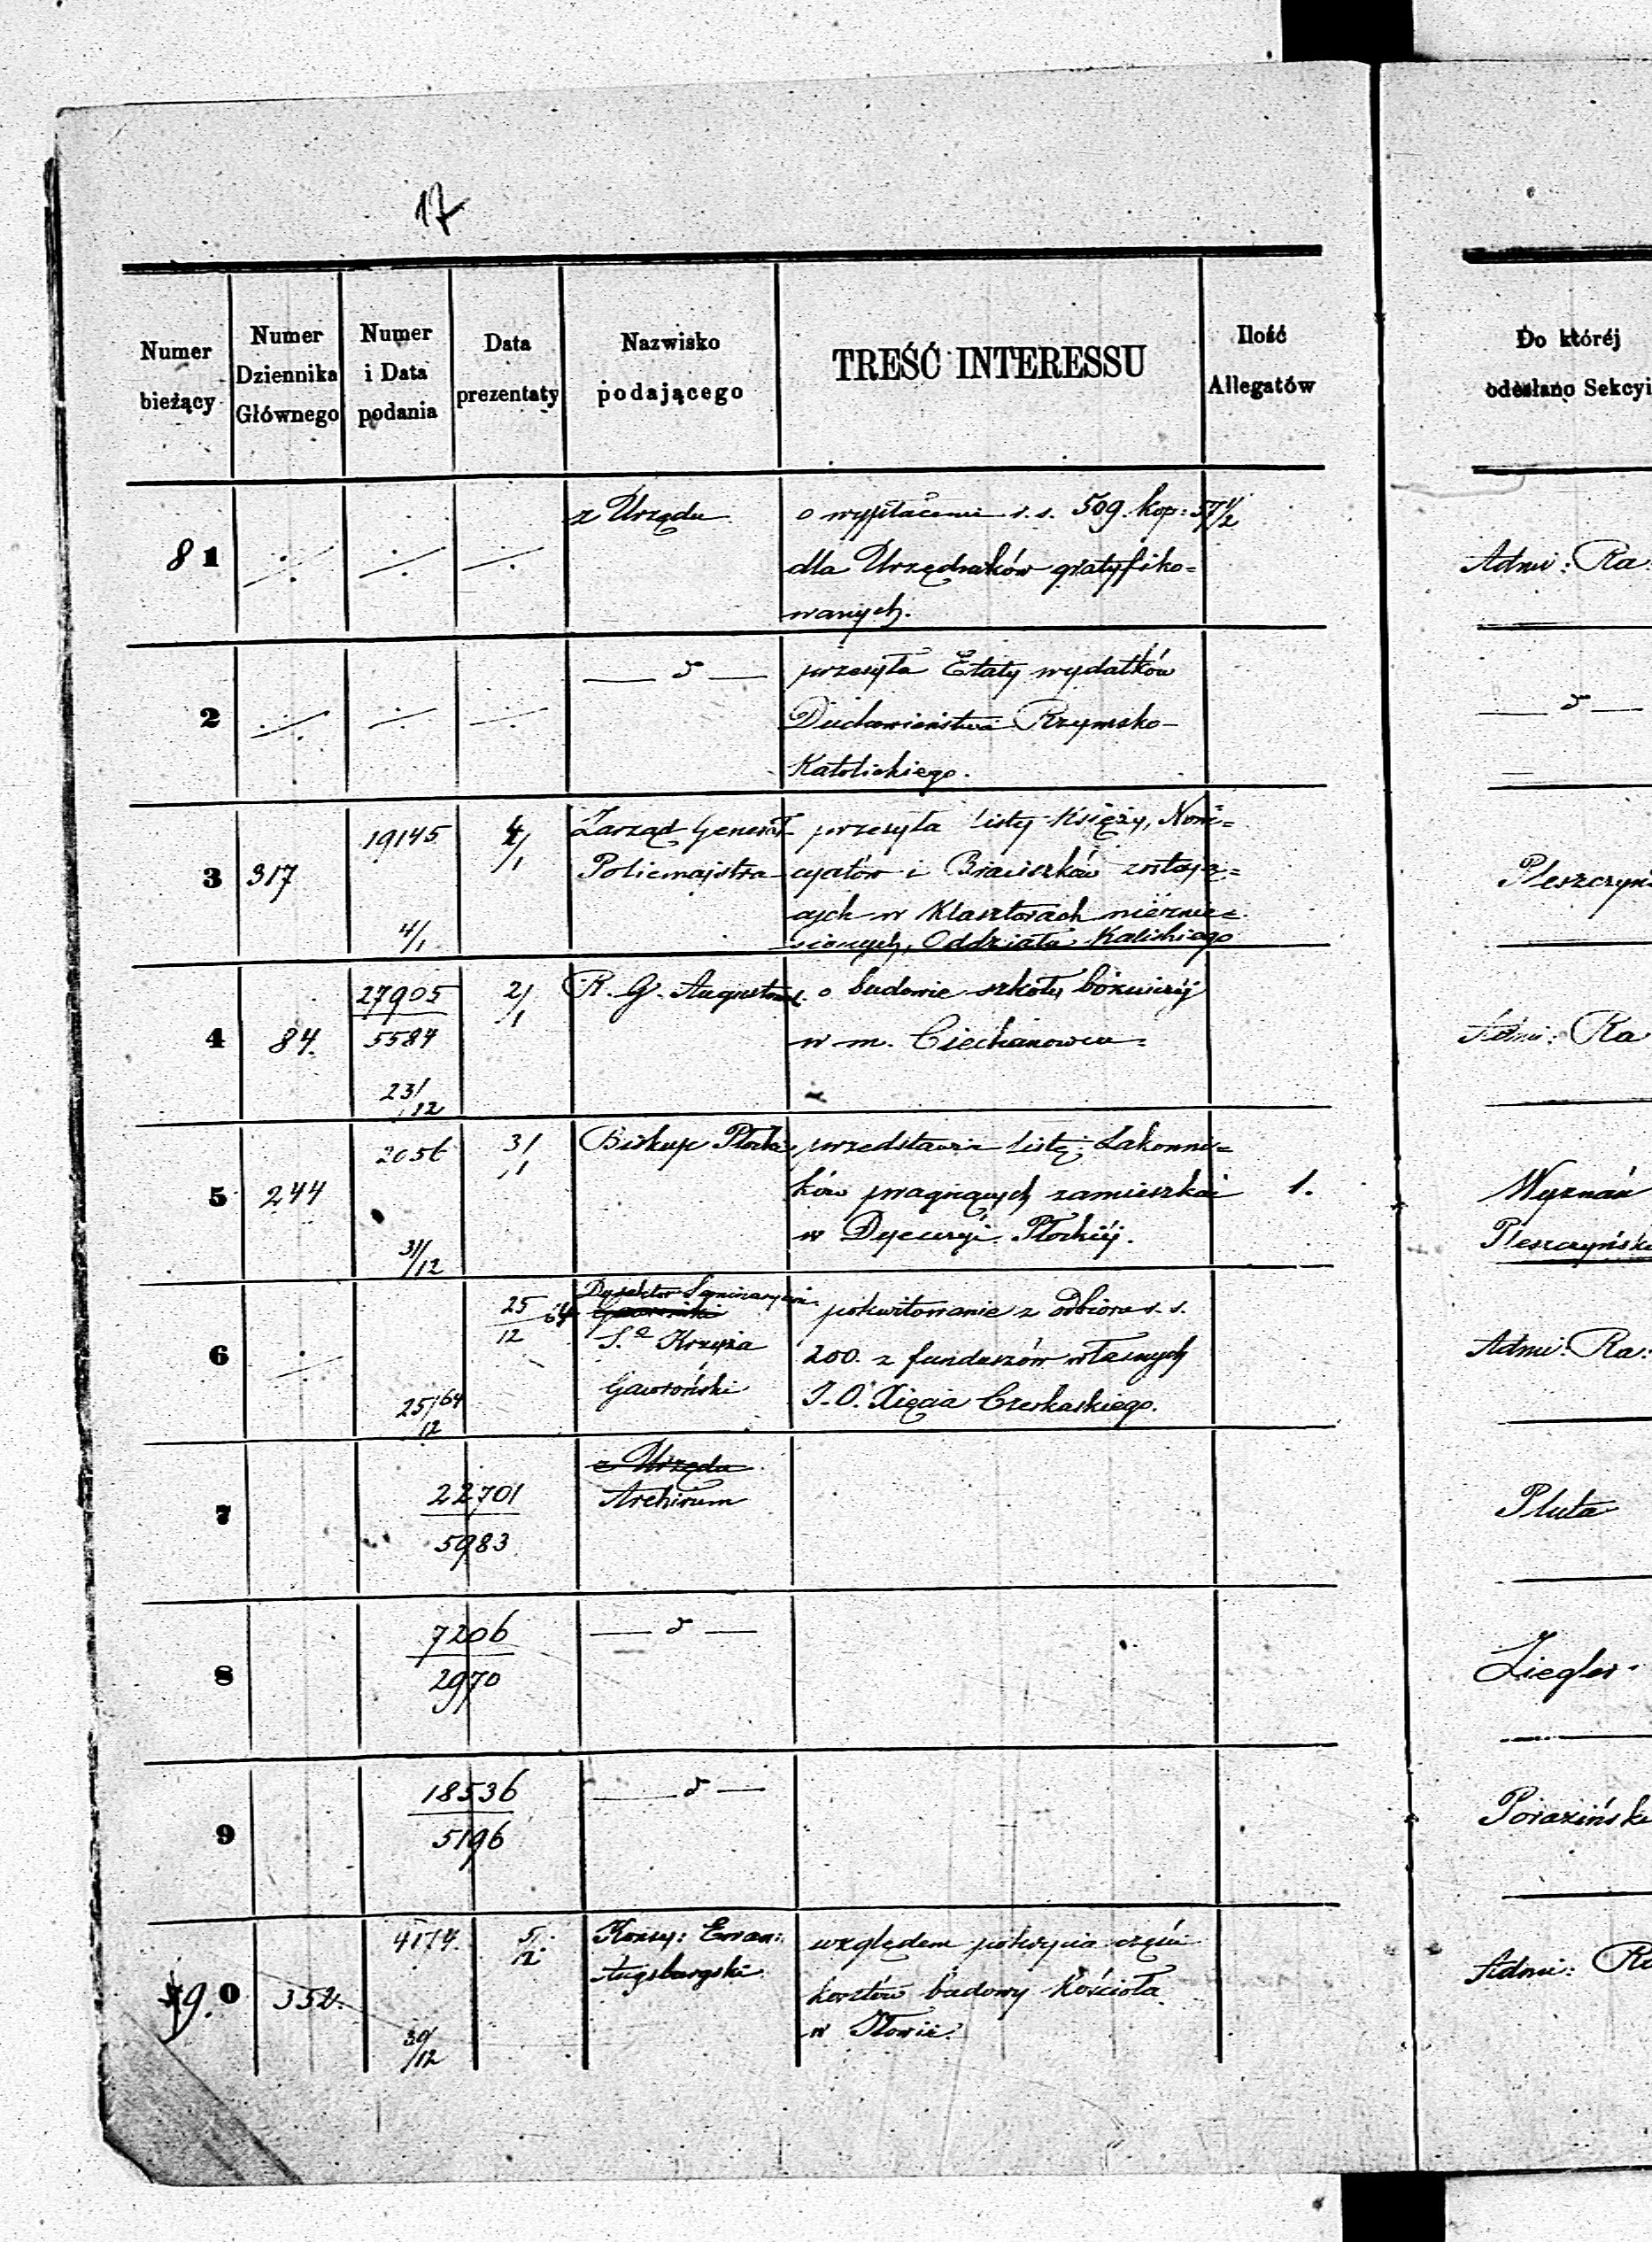 17
Numer bieżący
Numer Dziennika Głównego
Numer i Data podania
Data prezentaty
Nazwisko podającego
TREŚĆ INTERESSU
Ilość Allegatów
Do któréj odesłano Sekcyi
81 z Urzędu o wypłacenie r. s. 509. kop: 57 1/2
dla Urzędników gratyfiko=
wanych.
Admi: Ra:
2 — d — przesyła Etaty wydatków
Duchowieństwa Rzymsko-
Katolickiego.
— d —
3 317 19145 4/1 4/1 Zarząd Generał
Policmajstra
przesyła listy Księży, Nowi=
cyatów i Braciszków zostają=
cych w Klasztorach niéznie=
sionych, Oddziału Kaliskiego
Pleszczyń
4 84. 27905
5584
23/12
2/1
R. G. Augustows. o budowie szkoły bóżniczéj
w m. Ciechanowcu.
Admi: Ra
5 244 2056 31/12 3/1 Biskup Płocki przedstawia listę Zakonni=
ków pragnących zamieszkać 1.
w Dyecezyi Płockiéj.
Wyznań
Pleszczyńsk
6 25/12 64 25/12 64
Dyrektor Seminaryum
S.o Krzyża
Gawroński
pokwitowanie z odbioru r. s.
200. z funduszów własnych
J. O. Xięcia Czerkaskiego.
Admi: Ra:
7 22701
5983
z Urzędu
Archiwum
Pluta
8 7206
2970
— d —
Ziegler
9 18536
5196
— d —
Poraziński
9.0 352. 4174. 30/12 5/12
Konsy: Ewan:
Augsburgski
względem pokrycia części
kosztów budowy Kościoła
w Iłowie.
Admi: Ra